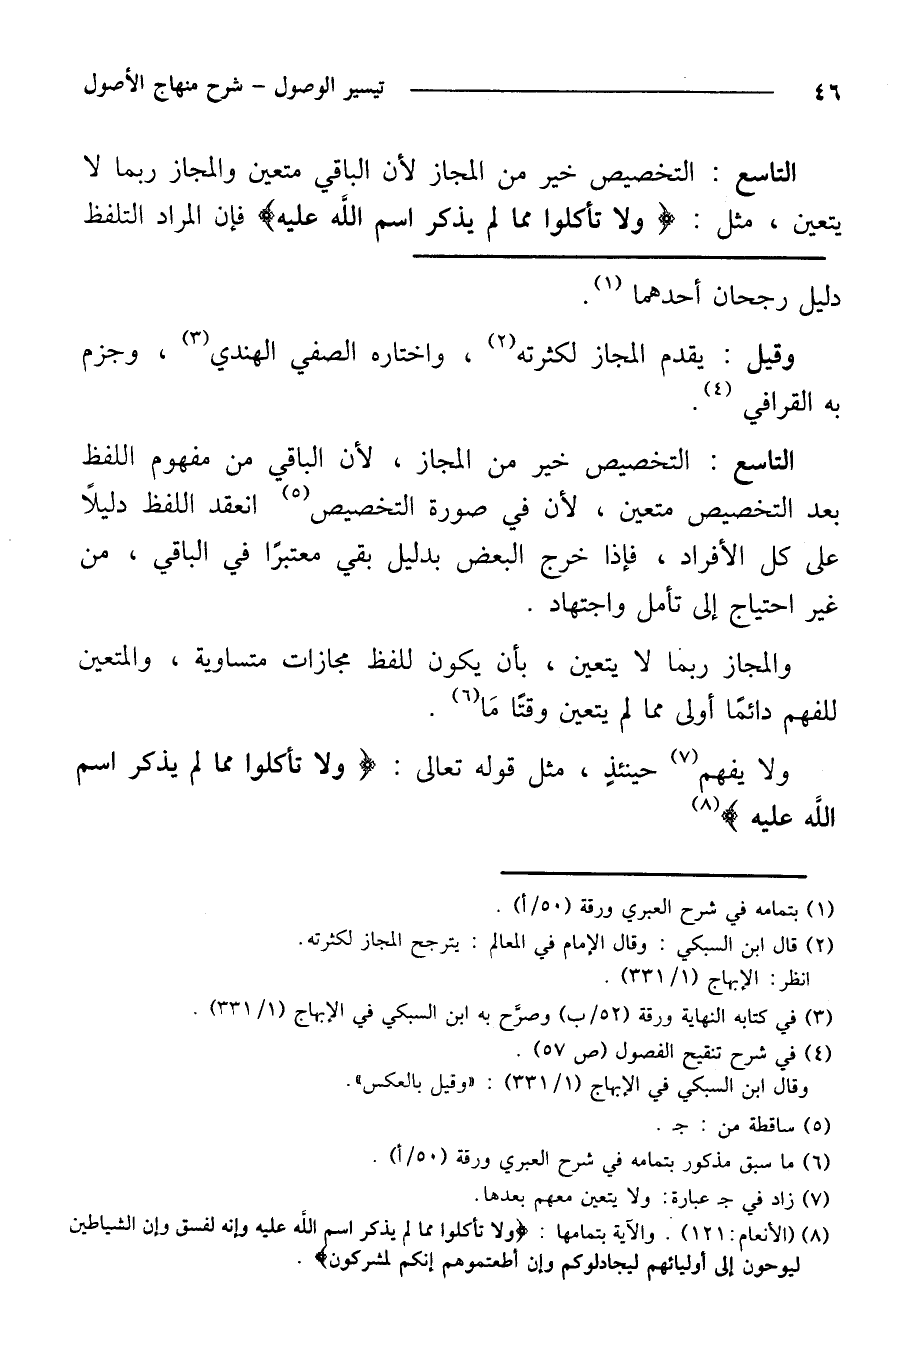 ٤٦ تيسير الوصول - شرح منهاج الأصول
التاسع : التخصيص خير من المجاز لأن الباقي متعين والمجاز ربما لا
يتعين ، مثل : ﴿ ولا تأكلوا مما لم يذكر اسم اللَّه عليه﴾ فإن المراد التلفظ
دليل رجحان أحدهما (١).
وقيل : يقدم المجاز لكثرته(٢) ، واختاره الصفي الهندي(٣) ، وجزم
به القرافي (٤).
التاسع : التخصيص خير من المجاز ، لأن الباقي من مفهوم اللفظ
بعد التخصيص متعين ، لأن في صورة التخصيص(٥) انعقد اللفظ دليلاً
على كل الأفراد ، فإذا خرج البعض بدليل بقي معتبرًا في الباقي ، من
غير احتياج إلى تأمل واجتهاد .
والمجاز ربما لا يتعين ، بأن يكون للفظ مجازات متساوية ، والمتعين
للفهم دائمًا أولى مما لم يتعين وقتًا مَا(٦) .
ولا يفهم(٧) حينئذٍ ، مثل قوله تعالى : ﴿ ولا تأكلوا مما لم يذكر اسم
اللَّه عليه ﴾(٨)
(١) بتمامه في شرح العبري ورقة (٥٠/أ) .
(٢) قال ابن السبكي : وقال الإمام في المعالم : يترجح المجاز لكثرته.
انظر: الإبهاج (١/ ٣٣١) .
(٣) في كتابه النهاية ورقة (٥٢/ب) وصرَّح به ابن السبكي في الإبهاج (١/ ٣٣١) .
(٤) في شرح تنقيح الفصول (ص ٥٧) .
وقال ابن السبكي في الإبهاج (١/ ٣٣١) : «وقيل بالعكس».
(٥) ساقطة من : جـ .
(٦) ما سبق مذكور بتمامه في شرح العبري ورقة (٥٠/أ) .
(٧) زاد في جـ عبارة: ولا يتعين معهم بعدها.
(٨) (الأنعام: ١٢١) . والآية بتمامها : ﴿ولا تأكلوا مما لم يذكر اسم اللَّه عليه وإنه لفسق وإن الشياطين
ليوحون إلى أوليائهم ليجادلوكم وإن أطعتموهم إنكم لمشركون﴾ .